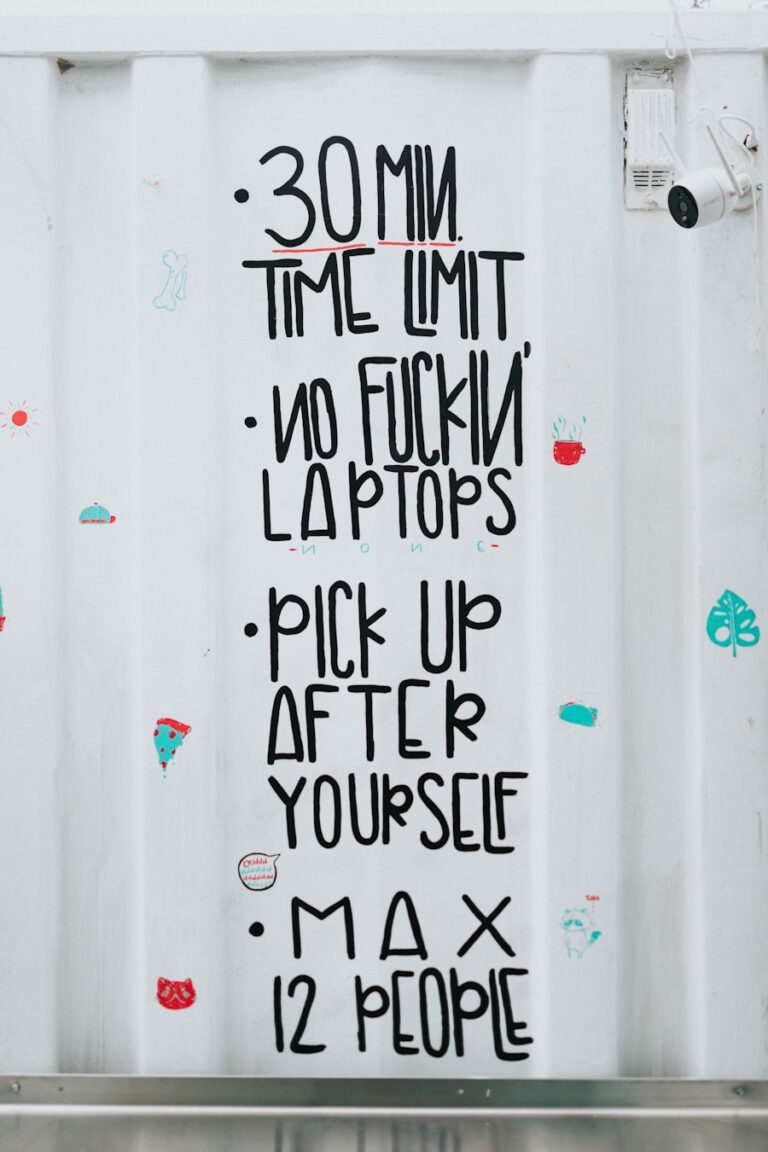 • 30 MIN.
TIME LIMIT
• NO FUCKIN'
LAPTOPS
- NONE -
• PICK UP
AFTER
YOURSELF
• MAX
12 PEOPLE